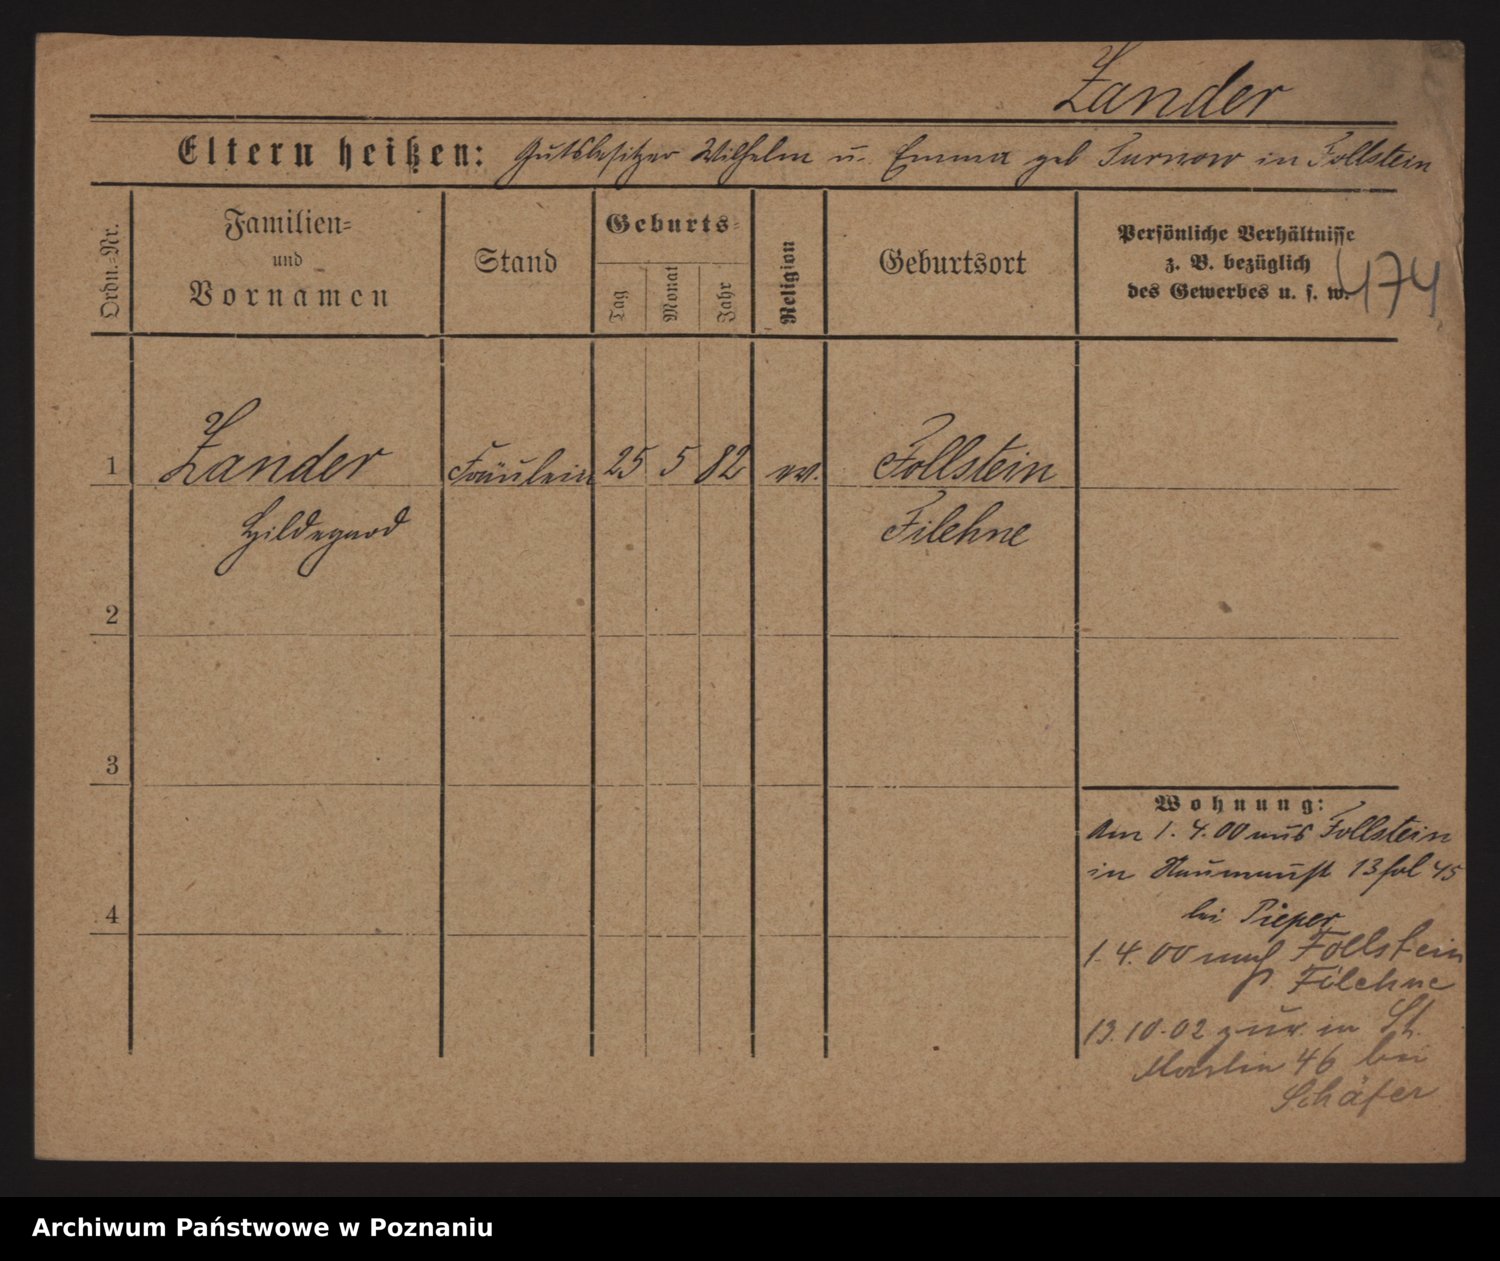 Zander
Eltern heißen: Gutsbesitzer Wilhelm u. Emma geb Turnow in Follstein
Ordn.-Nr.
Familien-
und
Vornamen
Stand
Geburts-
Tag
Monat
Jahr
Religion
Geburtsort
Persönliche Verhältnisse
z. B. bezüglich
des Gewerbes u. s. w.
474
1 Zander Fräulein 25 5 82 ev. Follstein
Hildegard Filehne
2
3
4
Wohnung:
Am 1. 4. 00 aus Follstein
in Naumannst 13 fol 45
bei Pieper
1. 4. 00 nach Follstein
Filehne
13. 10. 02 zur. in St.
Martin 46 bei
Schäfer
Archiwum Państwowe w Poznaniu